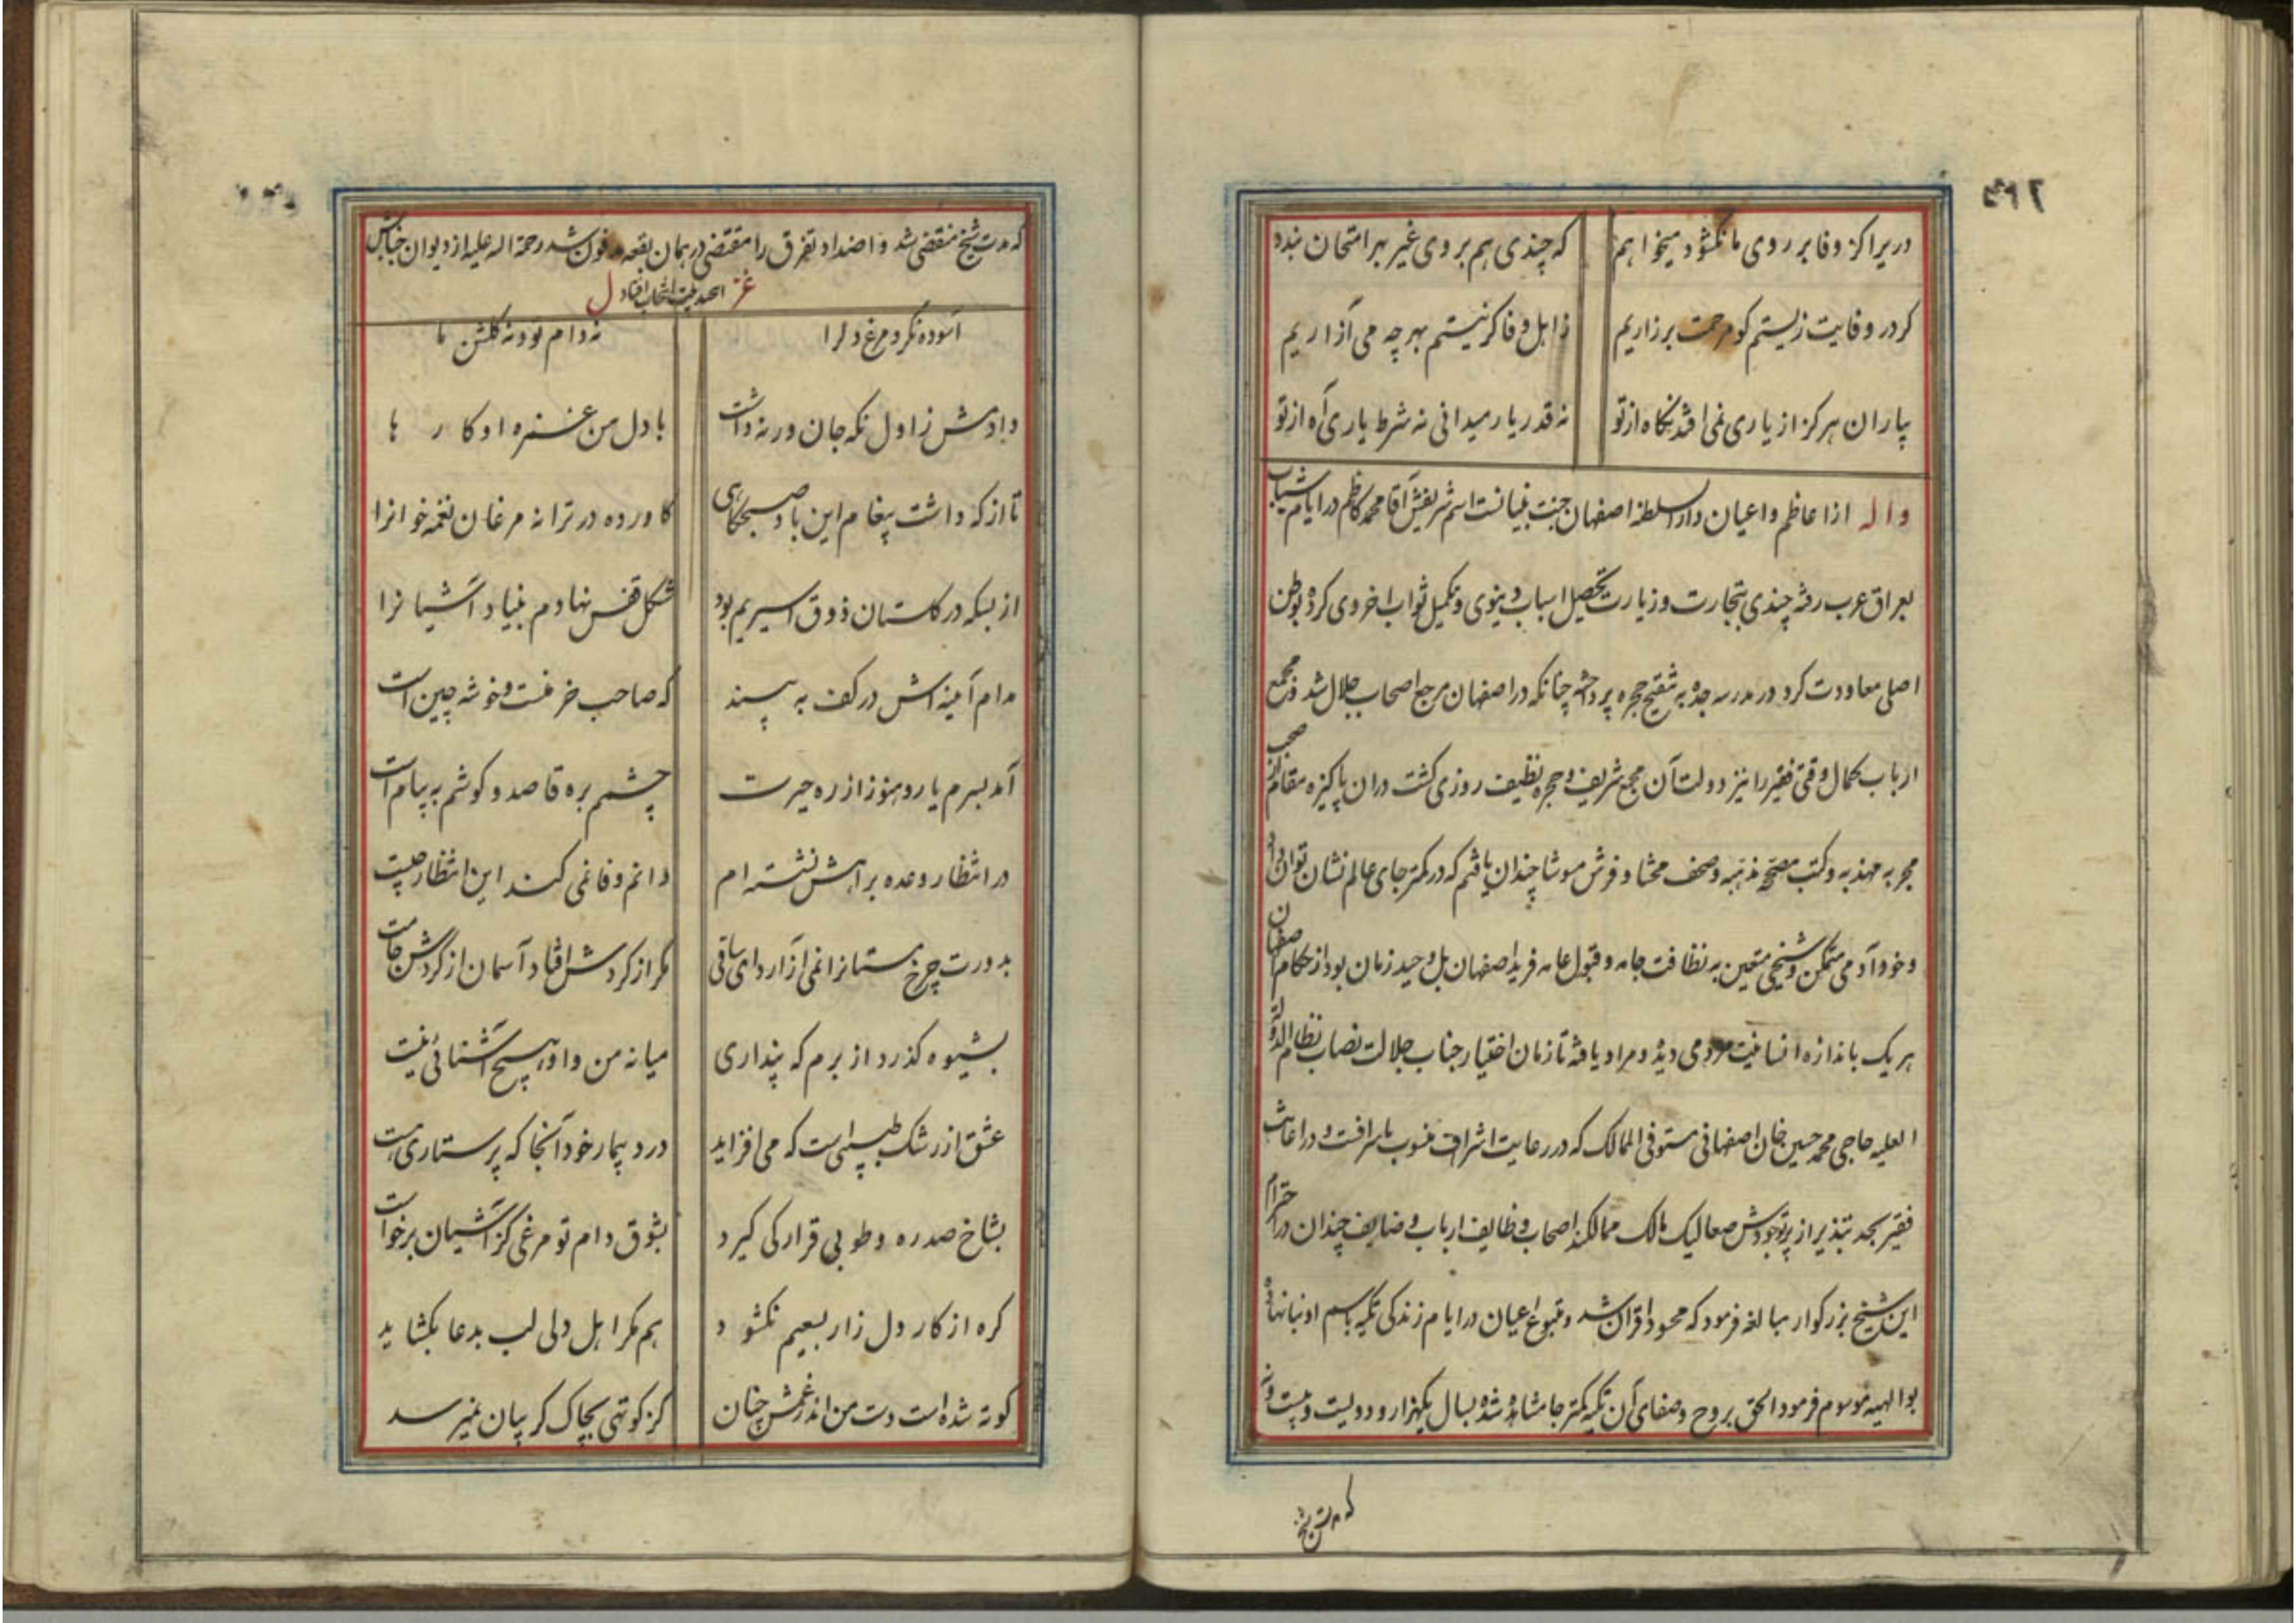 دریرا کز وفا بر روی ما نکشود میخواهم که چندی هم بر وی غیر بهر امتحان بندد
کر در وفایت زیستم کو مرحمت بر زاریم ز اهل وفا کر نیستم بهر چه می آزاریم
یاران هرکز از یاری نمی افتد نکاه از تو نه قدر یار میدانی نه شرط یاری آه از تو
واله از اعاظم واعیان دار السلطنه اصفهان جنت بنیانست اسم شریفش آقا محمد کاظم در ایام شباب
بعراق عرب رفته چندی بتجارت و زیارت تحصیل اسباب دینوی و تکمیل ثواب اخروی کرده بوطن
اصلی معاودت کرد در مدرسه جده به تنقیح حجره پرداخته چنانکه در اصفهان مرجع اصحاب جلال شد و مجمع
ارباب کمال وقتی فقیر را نیز دولت آن مجمع شریف و حجره نظیف روزی کشت در ان پاکیزه مقام
مهذبه و کتب مصححه مذهبه و صحف محشا و فرش موشا چندان یافتم که در کمتر جای عالم نشان توان داد
و خود آدمی متمکن و شیخی متعین به نظافت جامه و قبول عامه فرید اصفهان بل وحید زمان بود از حکام اصفهان
هر یک باندازه انسانیت مردمی دیده و مراد یافته تا زمان اختیار جناب جلالت نصاب نظام الدوله
العلیه حاجی محمد حسین خان اصفهانی مستوفی الممالک که در رعایت اشراف منسوب باسرافست و در اعانت
فقیر بحد تبذیر از پرتو جودش صعالیک مالک ممالکند اصحاب وظایف ارباب چندان در احترام
این شیخ بزرکوار مبالغه فرمود که محسود اقران شد و متبوع اعیان در ایام زندکی تکیه باسم او بنا نهاده
بوالهیه موسوم فرمود الحق بروح و صفای آن تکیه کمتر جا مشاهده شده بسال یکهزار و دویست و بیست و نه
که مدت شیخ
که مدت شیخ منقضی شد و اضداد تفرق را مقتضی در همان بقعه مدفون شد رحمة اله علیه از دیوان جنابش
غز این چند بیت انتخاب افتاد ل
آسوده نکرد مرغ دلرا نه دام تو و نه کلشن ما
دادمش ز اول نکه جان ورنه داشت با دل من غمزه او کارها
تا از که داشت پیغام این باد صبحکاهی کاورده در ترانه مرغان نغمه خوانرا
از بسکه در کلستان ذوق اسیریم بود شکل قفس نهادم بنیاد آشیانرا
مدام آینه اش در کف به بینید که صاحب خرمنست و خوشه چین است
آمد بسرم یار و هنوز از ره حیرت چشمم بره قاصد و کوشم به پیام است
در انتظار وعده براهش نشسته ام دانم وفا نمی کند این انتظار چیست
بدورت چرخ مستانرا نمی آزارد ای ساقی مکر از کردش افتاد آسمان از کردش جامت
بشیوه کذرد از برم که پنداری میانه من و او هیچ آشنائی نیست
عشق از رشک طبیبی است که می افزاید درد بیمار خود آنجا که پرستاری هست
بشاخ صدره و طوبی قرار کی کیرد بشوق دام تو مرغی کز آشیان برخواست
کره از کار دل زار بسعیم نکشود هم مکر اهل دلی لب بدعا بکشاید
کوته شده است دست من اندر غمش چنان کز کوتهی بچاک کریبان نمیرسد